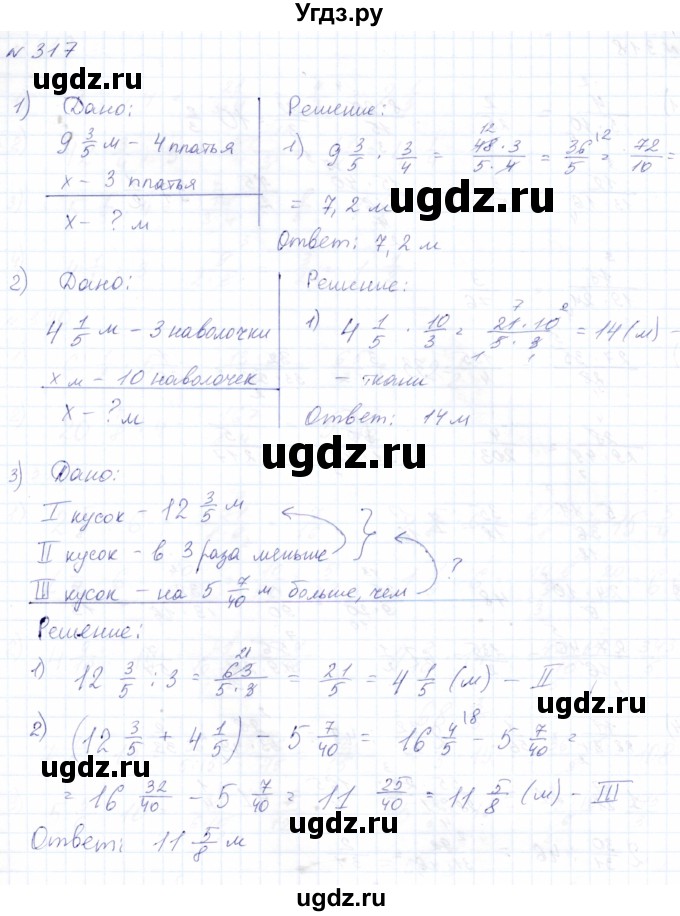 Угдз.ру
№ 317
1) Дано:
9 3/5 м - 4 платья
х - 3 платья
х - ? м
Решение:
1) 9 3/5 · 3/4 = 48·3/5·4 12 = 36/5 12 = 72/10 =
= 7,2 м
Ответ: 7,2 м
2) Дано:
4 1/5 м - 3 наволочки
х м - 10 наволочек
х - ? м
Решение:
1) 4 1/5 · 10/3 = 21·10/5·3 7 2 1 1 = 14 (м) -
- ткани
Ответ: 14 м
3) Дано:
I кусок - 12 3/5 м
II кусок - в 3 раза меньше
III кусок - на 5 7/40 м больше, чем ?
Решение:
1) 12 3/5 : 3 = 63/5·3 21 = 21/5 = 4 1/5 (м) - II
2) (12 3/5 + 4 1/5) - 5 7/40 = 16 4/5 18 - 5 7/40 =
= 16 32/40 - 5 7/40 = 11 25/40 = 11 5/8 (м) - III
Ответ: 11 5/8 м
ugdz.ru
ugdz.ru
ugdz.ru
ugdz.ru
ugdz.ru
ugdz.ru
ugdz.ru
ugdz.ru
ugdz.ru
ugdz.ru
ugdz.ru